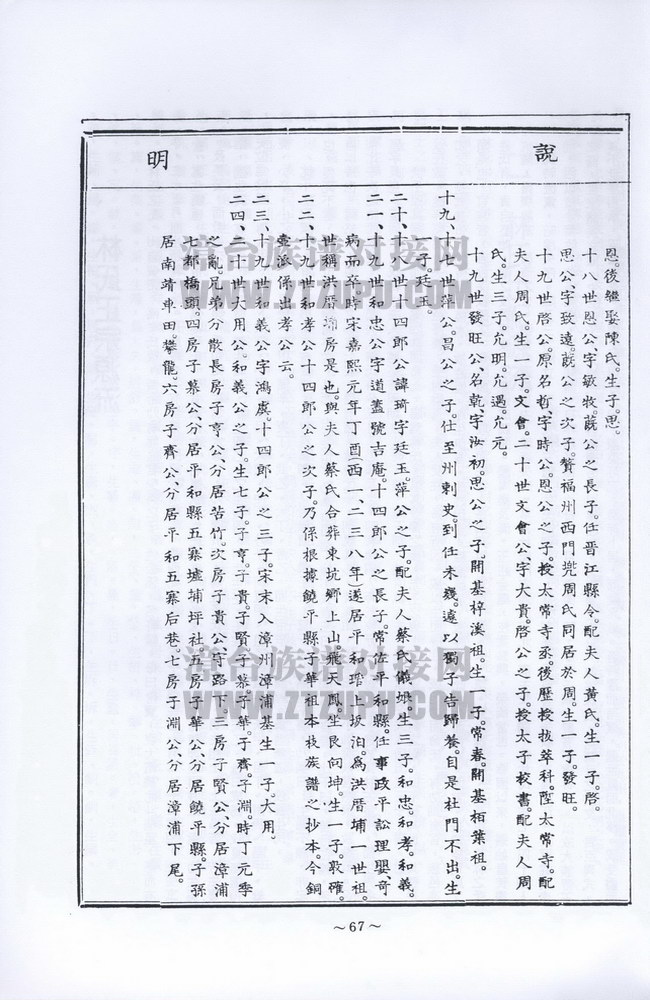 說明
恩。後繼娶陳氏。生子。思。
十八世恩公字敏牧。蕆公之長子。任晋江縣令。配夫人黃氏。生一子。啓。
思公。字致遠。蕆公之次子。贅福州西門兜周氏同居於周。生一子。發旺。
十九世啓公。原名哲。字時公。恩公之子。授太常寺丞。後歷授拔萃科。陞太常寺。配
夫人周氏。生一子。文會。二十世文會公。字大貴。啓公之子。授太子校書。配夫人周
氏。生三子。允明。允遇。允元。
十九世發旺公。名乾。字汝初。思公之子。開基梓溪祖。生一子。常春。開基栢葉祖。
十九、十七世萍公。昌公之子。仕至州刺史。到任未幾。遠以獨子告歸養。自是杜門不出。生
一子。廷玉。
二十、十八世十四郎公諱琦字廷玉。萍公之子。配夫人蔡氏儀娘生三子。和忠。和孝。和義。
二一、十九世和忠公字道蓋號吉庵。十四郎公之長子。常依平和縣。任事政平訟理嬰奇
病而卒。時宋嘉熙元年丁酉(西一、二三八年)遂居平和琯上坂泊。為洪厝埔一世祖。
世稱洪厝 房是也。與夫人蔡氏合葬東坑鄉上山。飛天鳳坐艮向坤。生一子。敦確。
二二、十九世和孝公十四郎公之次子。乃係根據饒平縣子華祖本枝族譜之抄本。今銅
壺派係出孝公云。
二三、十九世和義公字鴻虞。十四郎公之三子。宋末入漳州漳浦基生一子。大用。
二四、二十世大用公。和義公之子。生七子。子亨。子貴。子賢。子慕。子華。子齊。子淵。時丁元季
之亂。兄弟分散長房子亨公。分居苦竹。次房子貴公。守路下三房子賢公。分居漳浦
七都橋頭。四房子慕公。分居平和縣五寨墟埔坪社。五房子華公。分居饒平縣。子孫
居南靖車田。攀龍。六房子齊公。分居平和五寨后巷。七房子淵公。分居漳浦下尾。
漳台族谱对接网
WWW.ZTZUPU.COM
漳台族谱对接网
WWW.ZTZUPU.COM
~67~